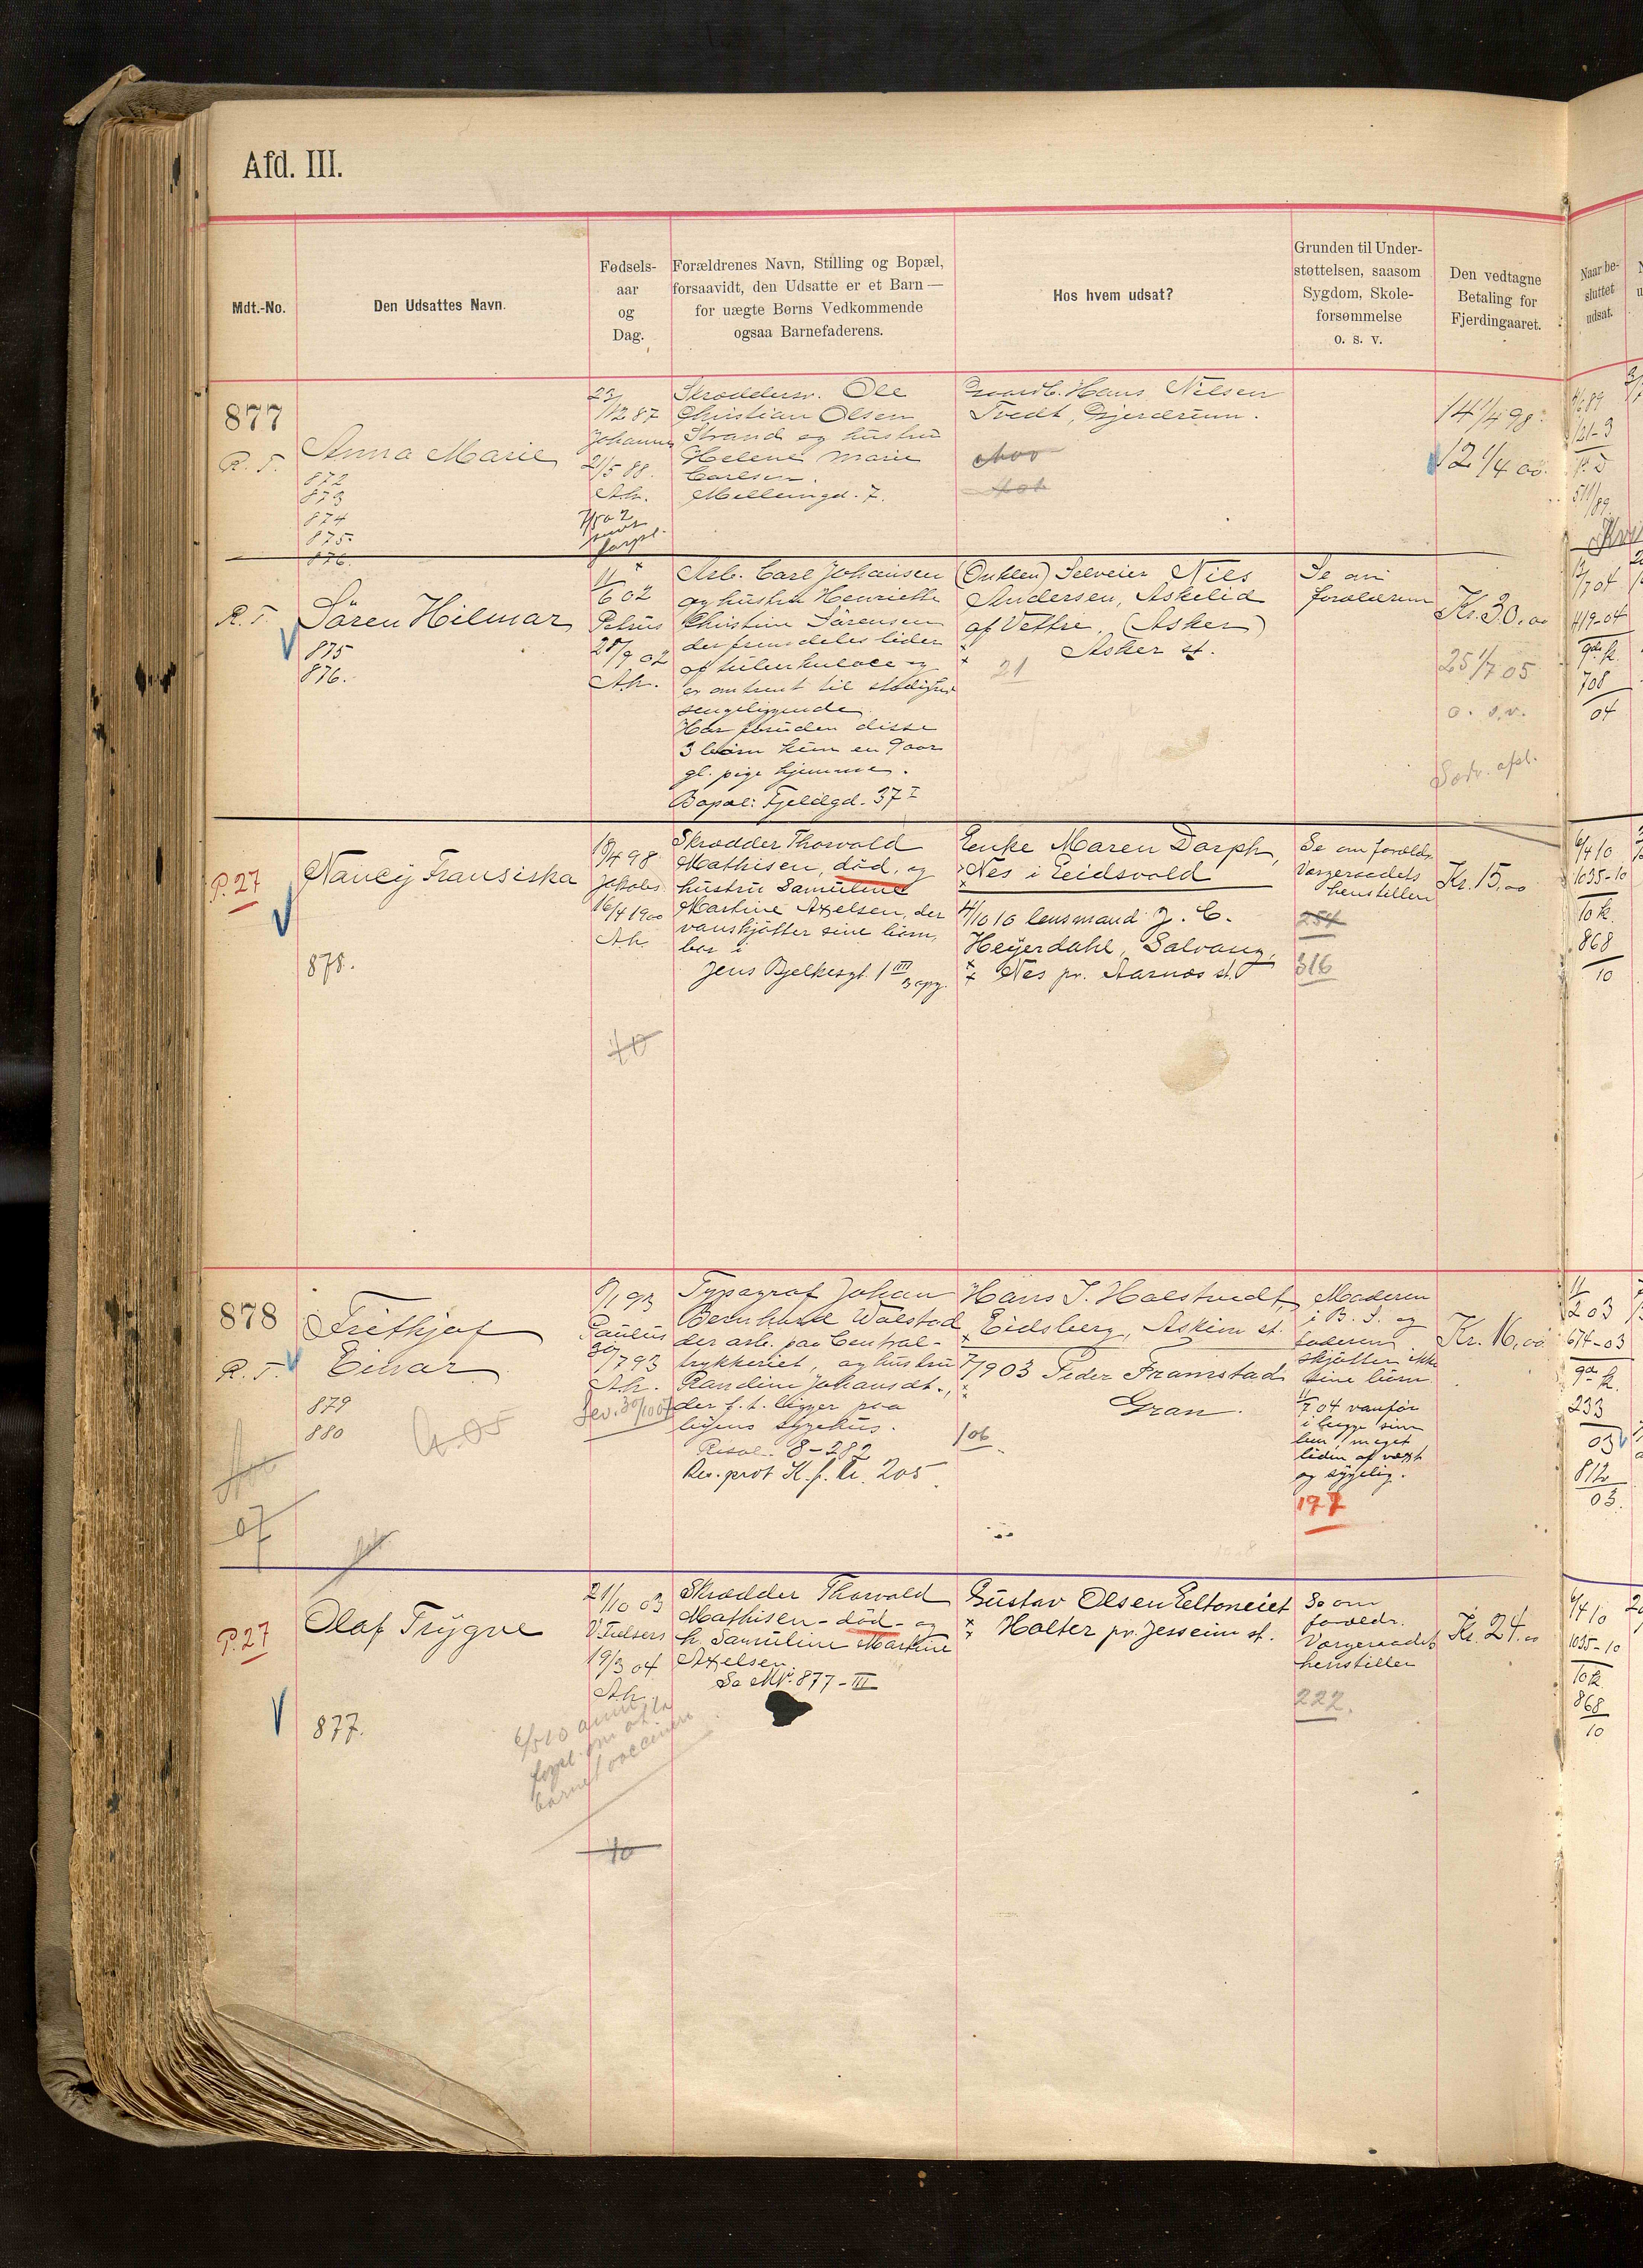 Afd. III.
Mdt.-No.
Den Udsattes Navn.
Fødsels-
aar
og
Dag.
Forældrenes Navn, Stilling og Bopæl,
forsaavidt, den Udsatte er et Barn —
for uægte Børns Vedkommende
ogsaa Barnefaderens.
Hos hvem udsat?
Grunden til Under-
støttelsen, saasom
Sygdom, Skole-
forsømmelse
o. s. v.
Den vedtagne
Betaling for
Fjerdingaaret.
Naar be-
sluttet
udsat.
877
R. T.
Anna Marie
872
873
874
875.
876.
23/12 87
Johannes
21/5 88.
Ah.
Ole
Christian Olsen
Strand og hustru
Helene Marie
Carlsen.
Møllergd. 7.
Gaardb. Hans Nilsen
Tvedt, Gjerdrum.
14 1/4 98.
12 1/4 00.
R. T.
Søren Hilmar
875
876.
11/6 02
Petrus
28/9 02
Ah.
Arb. Carl Johansen
og hustru Henriette
Christine Sørensen
der fremdeles lider
af tuberkulose og
er omtrent til stadighed
sengeliggende.
Har foruden disse
3 børn kun en 9 aar
gl. pige hjemme.
Bopæl: Fjeldgd. 37 I
(Onklen) Selveier Nils
Andersen, Askelid
af Vettre. (Asker)
Asker st.
21
Se om
forældrene
Kr. 30.00
25 1/7 05
o. s. v.
12/7 04
419-04
708
04
P. 27
Nancy Fransiska
878.
18/4 98
Jakobs
16/4 1900
Ah.
Skrædder Thorvald
Mathisen, død, og
hustru Samuline
Martine Axelsen, der
vanskjøtter sine børn,
bor i
Jens Bjelkesgt. 1 III
Enke Maren Dorph,
Nes i Eidsvold
4/10 10 lensmand J. C.
Heyerdahl, Salvang,
Nes pr. Aarnæs st.
Se om foreldr.
Vargeraadets
henstillen
254
316
Kr. 15.00
6/4 10
1035-10
10 k.
868
10
10
878
R. T.
Fritkjof
Einar
879
880
07
6/1 93
Paulus
30/7 93
Ah.
Typograf Johan
Bernhard Walstad
der arb. paa Central-
trykkeriet, og hustru
Randine Johansdt.,
der f. t. ligger paa
byens sygehus.
Resol. 8-282
Rev. prot K. f. Kr. 205
Hans J. Holstvedt,
Eidsberg, Askim st.
7/9 03 Peder Framstad
Gran.
106
Moderen
i B. S. og
faderen
skjøtter ikke
sine børn.
11/7 04 vanfør
i begge sine
ben, meget
liden af vext
og sygelig.
197
Kr. 16,00
11/2 03
674-03
9de k.
233
03
812
03.
P. 27
Olaf Trygve
877.
21/10 03
V. Fulsers
19/3 04
Ah.
Skrædder Thorvald
Mathisen - død - og
h. Samuline Martine
Axelsen
Se Mt. 877-III
Gustav Olsen Eeltoneiet
Holter pr. Jesseim st.
Se om
foreldr.
Vargeraadets
henstillen
222.
Kr. 24.00
6/4 10
1035-10
10 k.
868
10
10